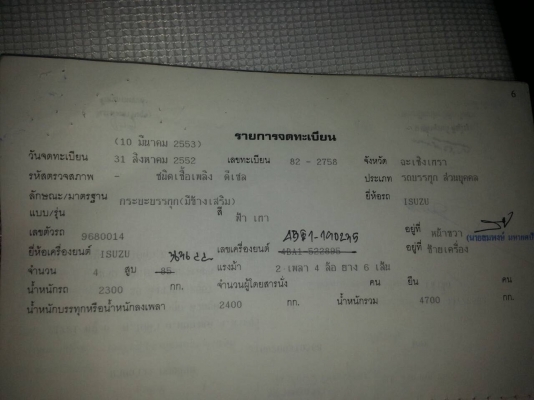 6
รายการจดทะเบียน
(10 มีนาคม 2553)
วันจดทะเบียน 31 สิงหาคม 2552 เลขทะเบียน 82 - 2758 จังหวัด ฉะเชิงเทรา
รหัสตรวจสภาพ - ชนิดเชื้อเพลิง ดีเซล ประเภท รถบรรทุก ส่วนบุคคล
ลักษณะ/มาตรฐาน กระบะบรรทุก(มีข้างเสริม) ยี่ห้อรถ ISUZU
แบบ/รุ่น สี ฟ้า เทา
เลขตัวรถ 9680014 อยู่ที่ หน้าขวา
ยี่ห้อเครื่องยนต์ ISUZU เลขเครื่องยนต์ อยู่ที่ ซ้ายเครื่อง
จำนวน 4 สูบ 85 แรงม้า 2 เพลา 4 ล้อ ยาง 6 เส้น
น้ำหนักรถ 2300 กก. จำนวนผู้โดยสารนั่ง คน ยืน คน
น้ำหนักบรรทุกหรือน้ำหนักลงเพลา 2400 กก. น้ำหนักรวม 4700 กก.